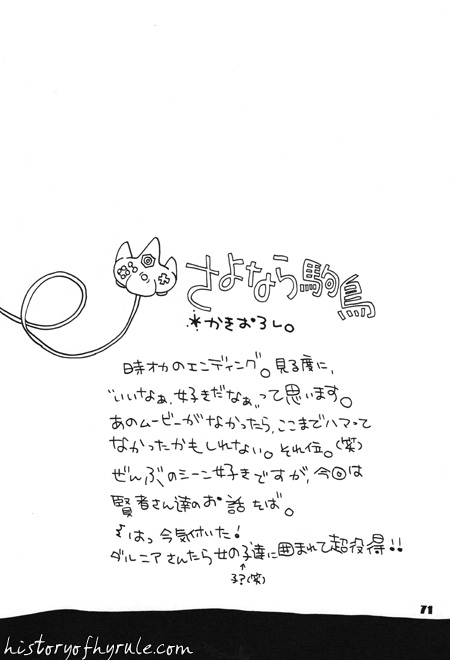 さよなら駒鳥
*かきおろし。
時オカのエンディング。見る度に、
"いいなぁ、好きだなぁ"って思います。
あのムービーがなかったら、ここまでハマって
なかったかもしれない。それ位。(笑)
ぜんぶのシーン好きですが、今回は
賢者さん達のお話をば。
はっ今気付いた!
ダルニアさんたら女の子達に囲まれて超役得!!
↑
子?(笑)
71
historyofhyrule.com